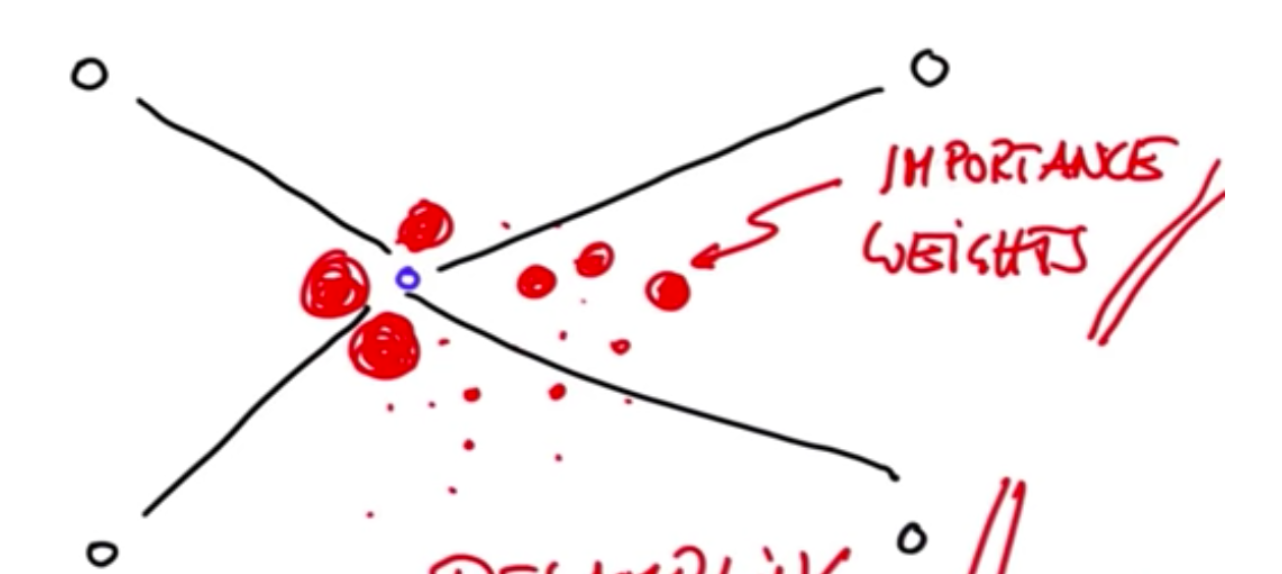 IMPORTANCE
WEIGHTS